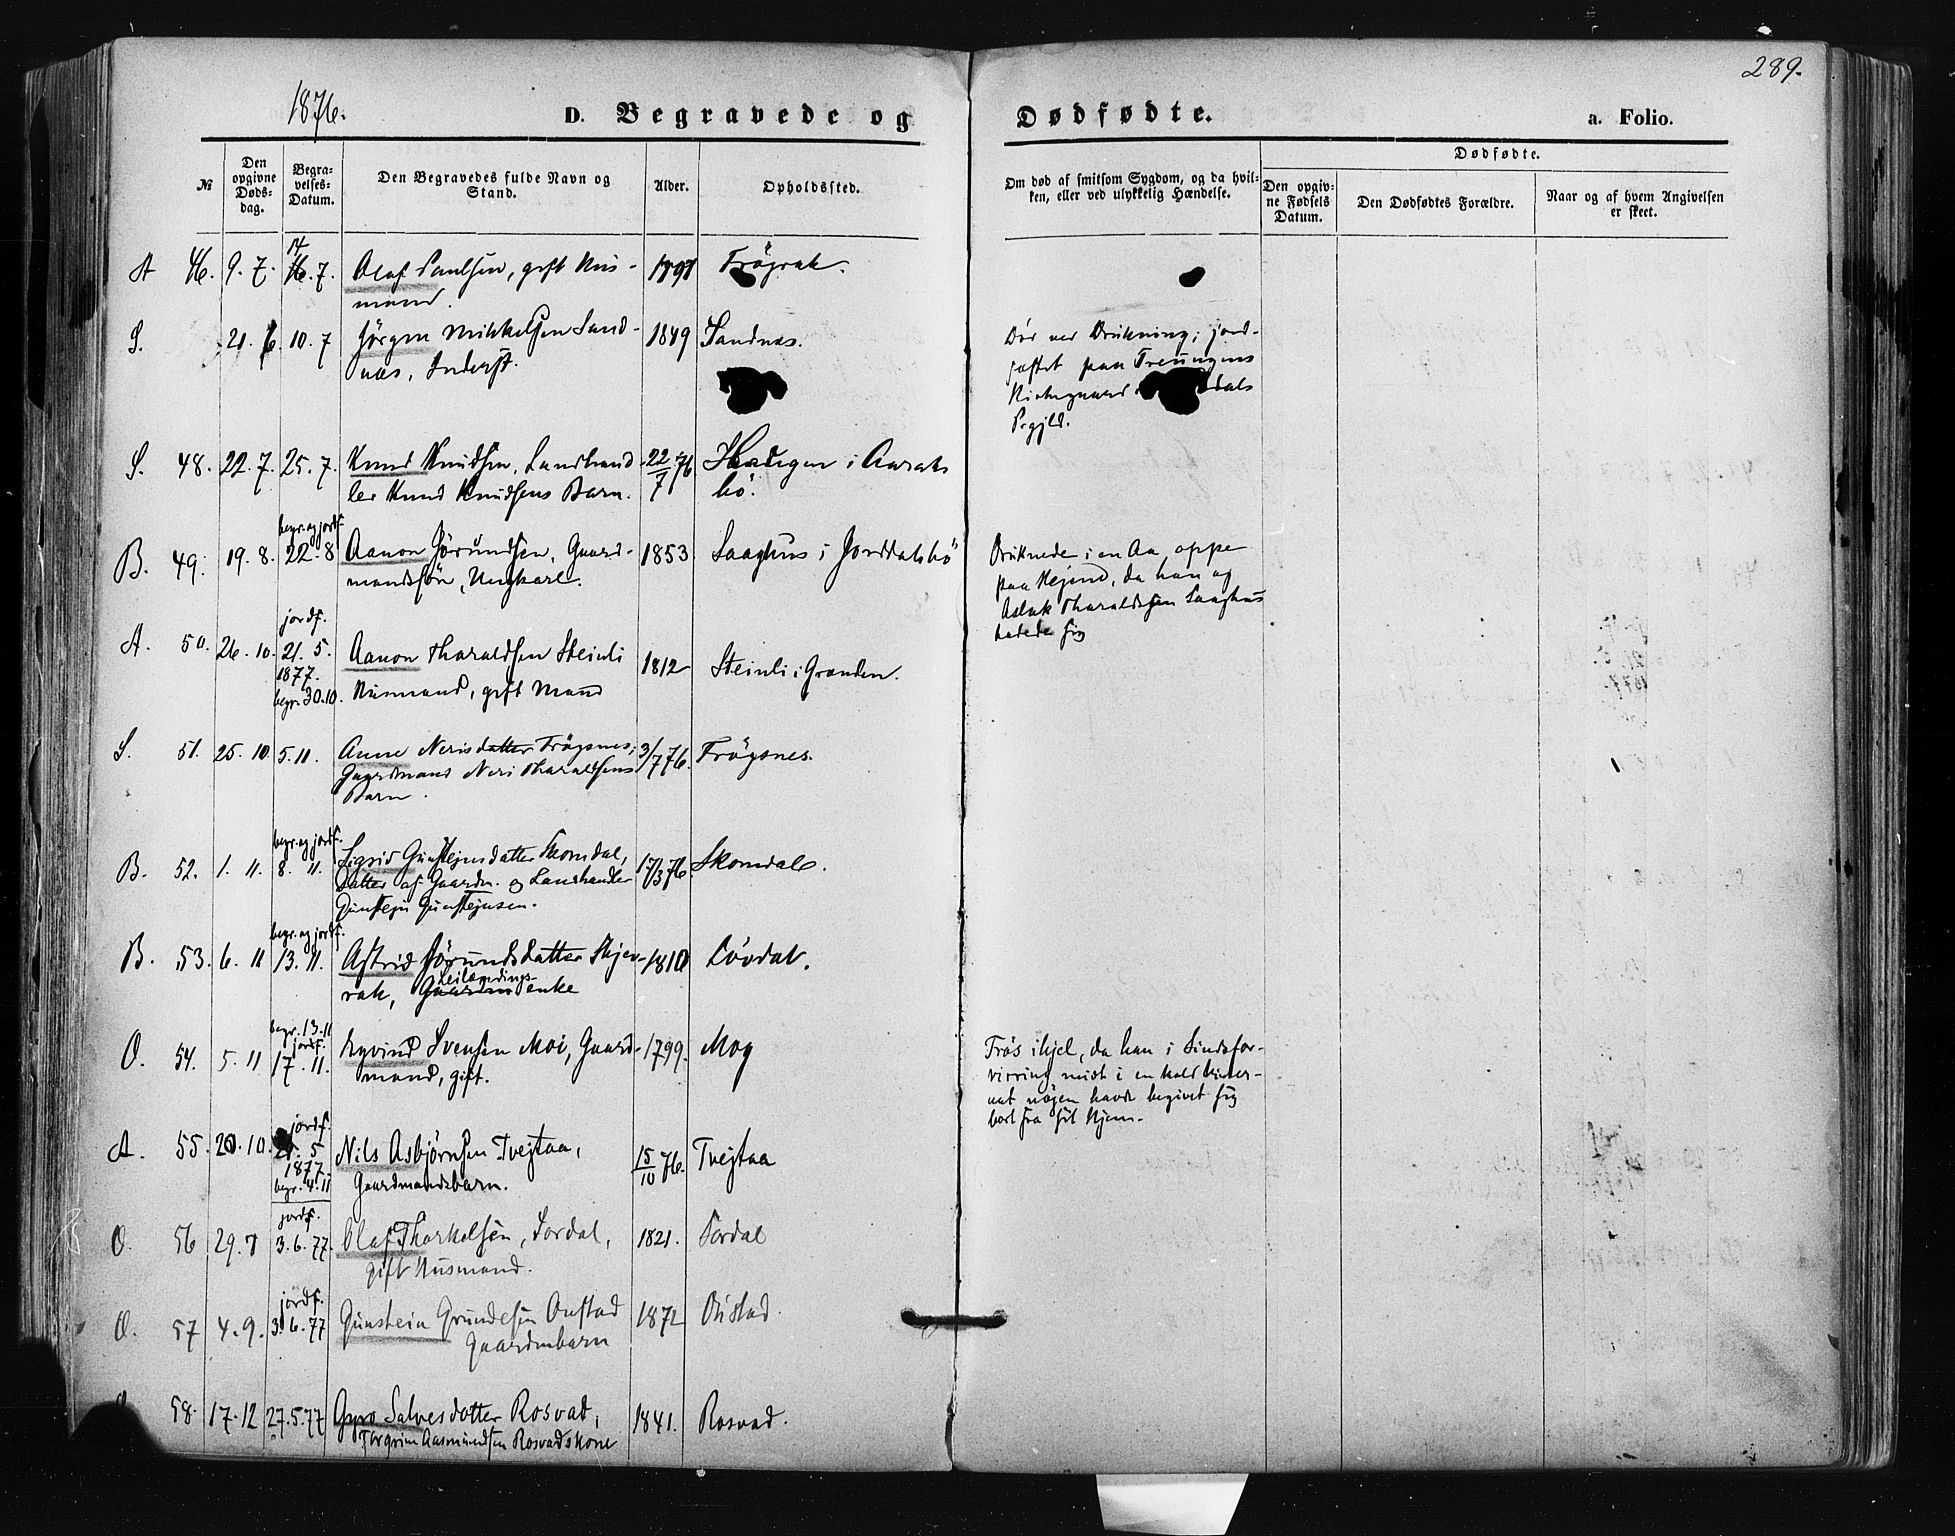 289.
1876.
D. Begravede og Dødfødte.
a. Folio.
№
Den opgivne Døds-dag.
Begra-velses-Datum.
Den Begravedes fulde Navn og Stand.
Alder.
Opholdssted.
Om død af smitsom Sygdom, og da hvil-
ken, eller ved ulykkelig Hændelse.
Dødfødte.
Den opgiv-ne Fødsels Datum.
Den Dødfødtes Forældre.
Naar og af hvem Angivelsen
er skeet.
A 46. 9. 7. 14 7. Olaf Paulsen, gift Hus-
mand.
S. 21. 6. 10. 7 Jörgen Mikkelsen Sand- 1849 Sandnæs. Dör ved Drukning; jord-
næs, Inderst. fæstet paa Treungens
Kirkegaard
Prgjld.
S. 48. 22. 7. 25. 7. Knud Knudsen, Landhand- 22/7 76 i Aaraks
ler Knud Knudsens Barn. bö.
begr. og jordf.
B. 49. 19. 8. 22-8 Aanon Jörundsen, Gaard- 1853. Saaghus i Jorddalsbö Druknede i en Aa, oppe
mandssön, Ungkarl. paa Hejene, da han og
Aslak Tharaldsen Saaghus
badede sig
jordf.
A. 50. 26. 10. 21. 5. Aanon Tharaldsen Steinli 1812 Steinli i Grænden.
1877.
begr. 30.10. Husmand, gift Mand
S. 51. 25. 10. 5. 11. Anne Nerisdatter Frögsnes, 3/7 76. Frögsnes.
Gaardmand Neri Tharaldsens
Barn.
begr. og jordf.
B. 52. 1. 11. 8. 11. Sigrid Gunstejnsdatter Skomdal, 17/3 76. Skomdal.
Datter af Gaardm. og Landhandler
Gunstejn Gunstejnsen.
begr. og jordf.
B. 53. 6. 11 13. 11. Astrid Jörundsdatter Skjev- 1810 Lövdal.
leilændings-
rak, Gaardm enke
begr. 13.11
jordf.
O. 54. 5. 11 17. 11. Eyvind Svensen Moi, Gaard- 1799. Moy Frös ihjel, da han i Sindsfor-
mand, gift. virring midt i en kold Vinter-
nat nögen havde begivet sig
bort fra sit Hjem.
jordf.
A. 55. 20. 10. 21. 5 Nils Asbjörnsen Tvejtaa, 15/10 76. Tvejtaa
1877.
begr. 4.11 Gaardmandsbarn.
jordf.
O. 56 29. 7 3. 6. 77. Olaf Thorkelsen, Sordal, 1821. Sordal
gift Husmand.
jordf.
O. 57 4. 9. 3. 6. 77 Gunstein Grundesen Austad 1872
Gaardmbarn
58. 17. 12 27. 5. 77 Gyro Salvesdatter Rosvad, 1841. Rosvad.
Torgrim Aasmundsen Rosvads kone